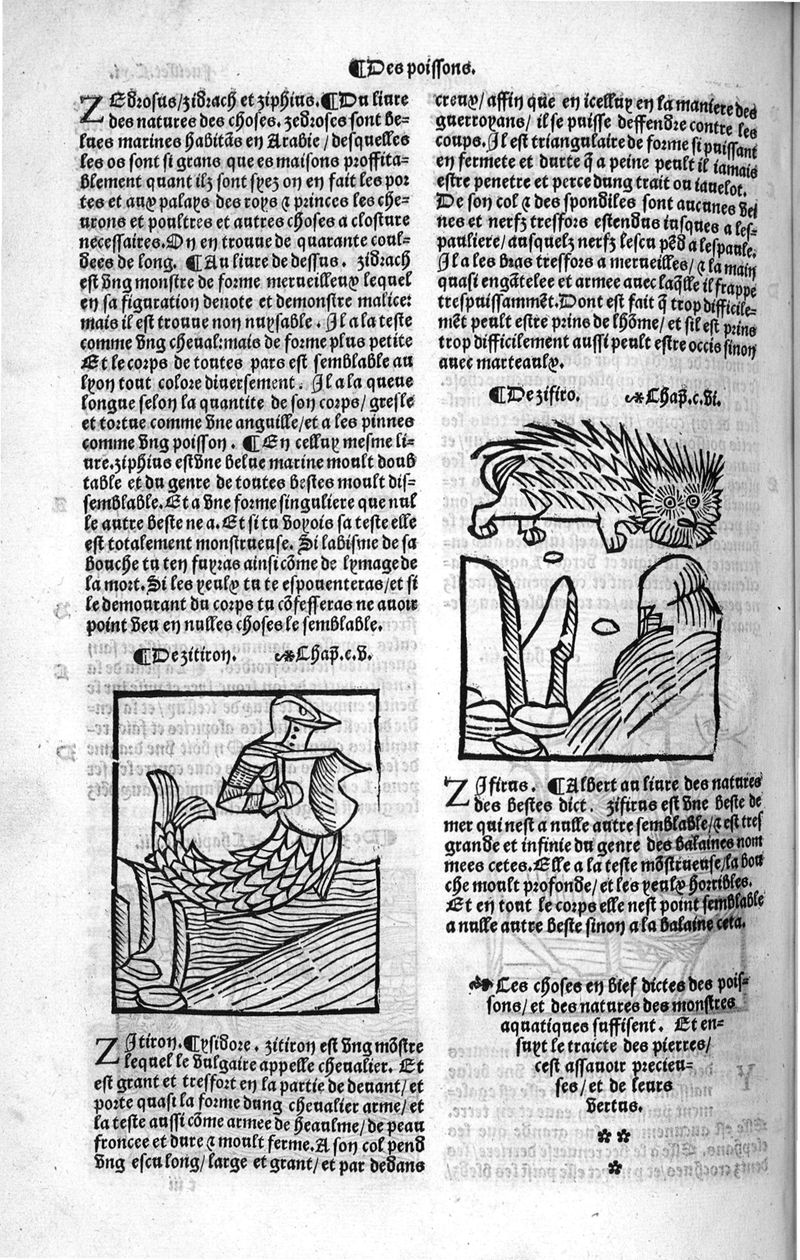 ¶Des poissons.
ZEdrosus/zidrach et ziphius.¶Du liure
des natures des choses. zedroses sont be-
lues marines habitãs en Arabie/desquelles
les os sont si grans que es maisons proffita-
blement quant ilz sont syez on en fait les por
tes et aux palays des roys ⁊ princes les che-
urons et poultres et autres choses a closture
necessaires.On en trouue de quarante coul-
dees de long. ¶Au liure de dessus. zidrach
est vng monstre de forme merueilleux lequel
en sa figuration denote et demonstre malice:
mais il est trouue non nuysable. Il a la teste
comme vng cheual:mais de forme plus petite
Et le corps de toutes pars est semblable au
lyon tout colore diuersement. Il a la queue
longue selon la quantite de son corps/gresle
et tortue comme vne anguille/et a les pinnes
comme vng poisson. ¶En celluy mesme li-
ure.ziphius est vne belue marine moult doub
table et du genre de toutes bestes moult dis-
semblable.Et a vne forme singuliere que nul
le autre beste ne a.Et si tu voyois sa teste elle
est totalement monstrueuse. Si labisme de sa
bouche tu ten fuyras ainsi cõme de lymage de
la mort.Si les yeulx tu te espouenteras/et si
le demourant du corps tu cõfesseras ne auoir
point veu en nulles choses le semblable.
¶De zitiron. Chap̃.c.v.
ZItiron.¶ysidore. zitiron est vng mõstre
lequel le vulgaire appelle cheualier. Et
est grant et tresfort en la partie de deuant/et
porte quasi la forme dung cheualier arme/et
la teste aussi cõme armee de heaulme/de peau
froncee et dure ⁊ moult ferme.A son col pend
vng escu long/large et grant/et par dedans
creux/affin que en icelluy en la maniere des
guerroyans/il se puisse deffendre contre les
coups.Il est triangulaire de forme si puissant
en fermete et durte q̃ a peine peult il iamais
estre penetre et perce dung trait ou iauelot.
De son col ⁊ des spondiles sont aucunes vei
nes et nerfz tresfors estendus iusques a les-
pauliere/ausquelz nerfz lescu pẽd a lespaule.
Il a les bras tresfors a merueilles/⁊ la main
quasi engãtelee et armee auec laq̃lle il frappe
trespuissammẽt.Dont est fait q̃ trop difficile-
mẽt peult estre prins de lhõme/et sil est prins
trop difficilement aussi peult estre occis sinon
auec marteaulx.
¶De zifiro. Chap̃.c.vi.
ZIfirus. ¶Albert au liure des natures
des bestes dict. zifirus est vne beste de
mer qui nest a nulle autre semblable/⁊ est tres
grande et infinie du genre des balaines nom
mees cetes.Elle a la teste mõstrueuse/la bou
che moult profonde/et les yeulx horribles.
Et en tout le corps elle nest point semblable
a nulle autre beste sinon a la balaine ceta.
Ces choses en bief dictes des pois-
sons/et des natures des monstres
aquatiques suffisent. Et en-
suyt le traicte des pierres/
cest assauoir precieu-
ses/et de leurs
vertus.